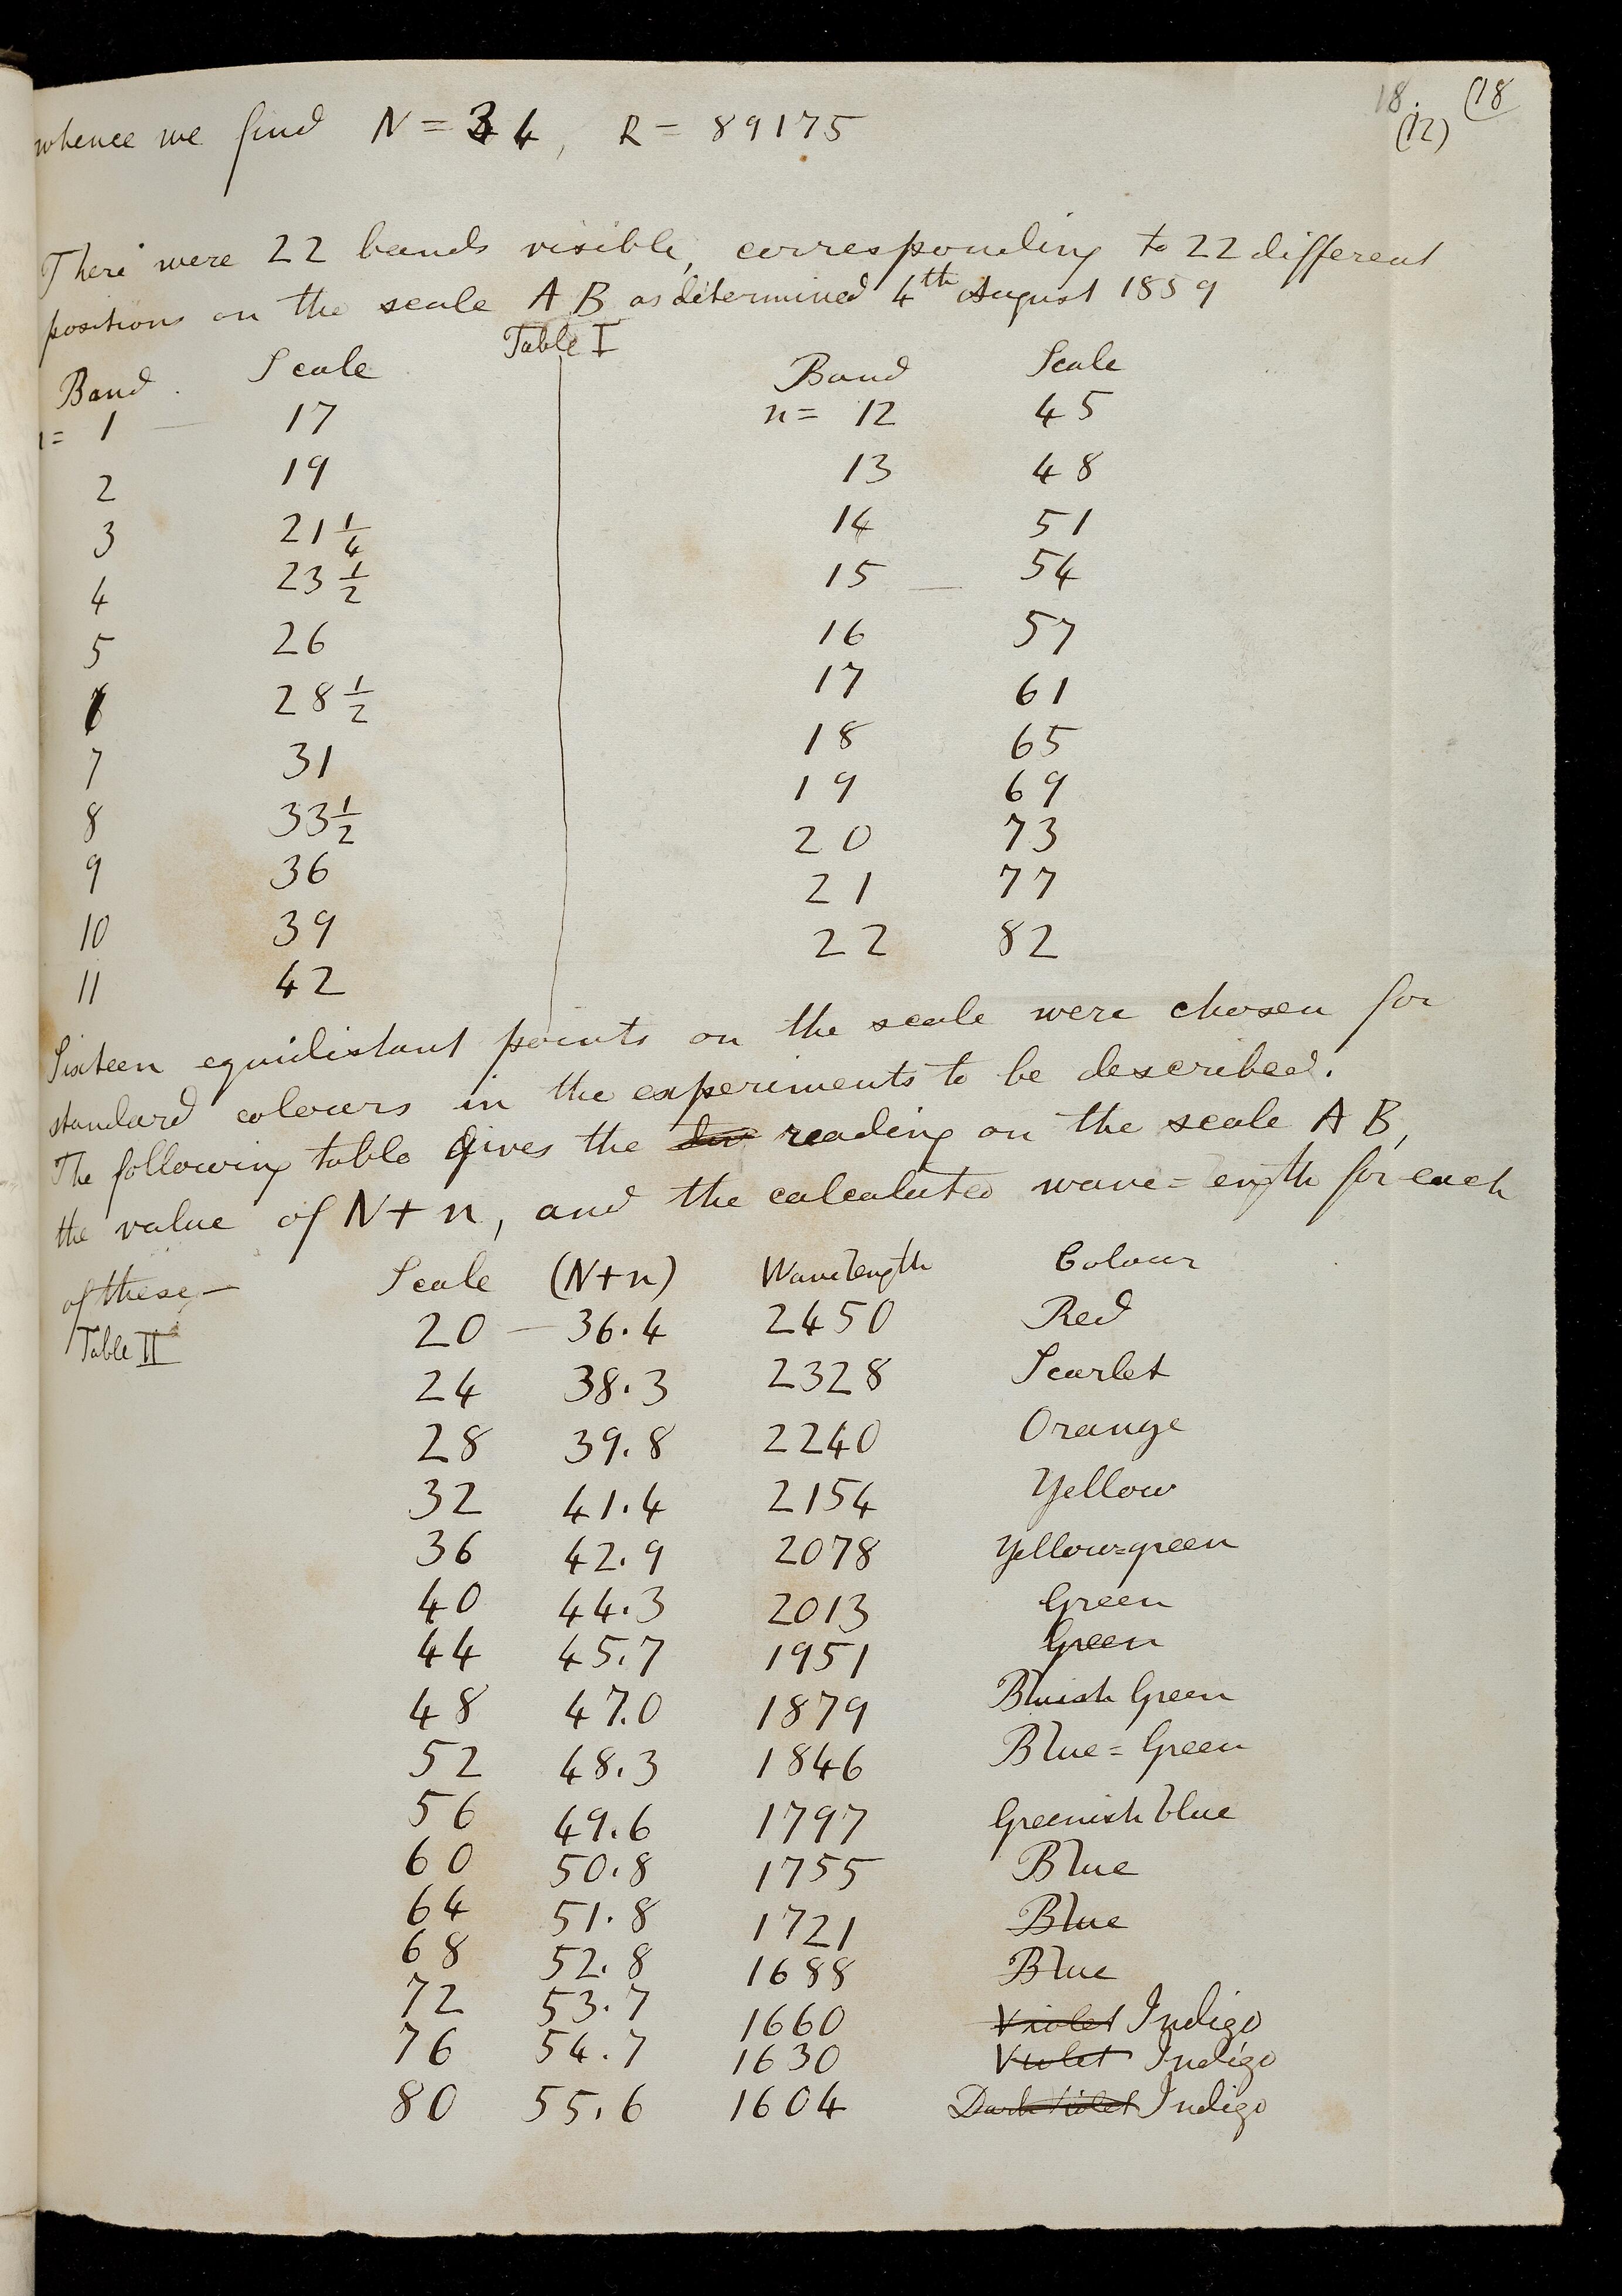 18. (18
(12)
whence we find N = 34, R = 89175
There were 22 bands visible, corresponding to 22 different
positions on the scale A B as determined 4th August 1859
Table I
Band Scale Band Scale
n= 1 — 17 n= 12 45
2 19 13 48
3 21 1/4 14 51
4 23 1/2 15 — 54
5 26 16 57
6 28 1/2 17 61
7 31 18 65
8 33 1/2 19 69
9 36 20 73
10 39 21 77
11 42 22 82
Sixteen equidistant points on the scale were chosen for
standard colours in the experiments to be described.
The following table gives the reading on the scale A B,
the value of N + n, and the calculated wave=length for each
of these,—
Table II
Scale (N+n) Wavelength Colour
20 — 36.4 2450 Red
24 38.3 2328 Scarlet
28 39.8 2240 Orange
32 41.4 2154 Yellow
36 42.9 2078 Yellow=green
40 44.3 2013 Green
44 45.7 1951 Green
48 47.0 1879 Bluish Green
52 48.3 1846 Blue=Green
56 49.6 1797 Greenish blue
60 50.8 1755 Blue
64 51.8 1721 Blue
68 52.8 1688 Blue
72 53.7 1660 Violet Indigo
76 54.7 1630 Violet Indigo
80 55.6 1604 Dark Violet Indigo